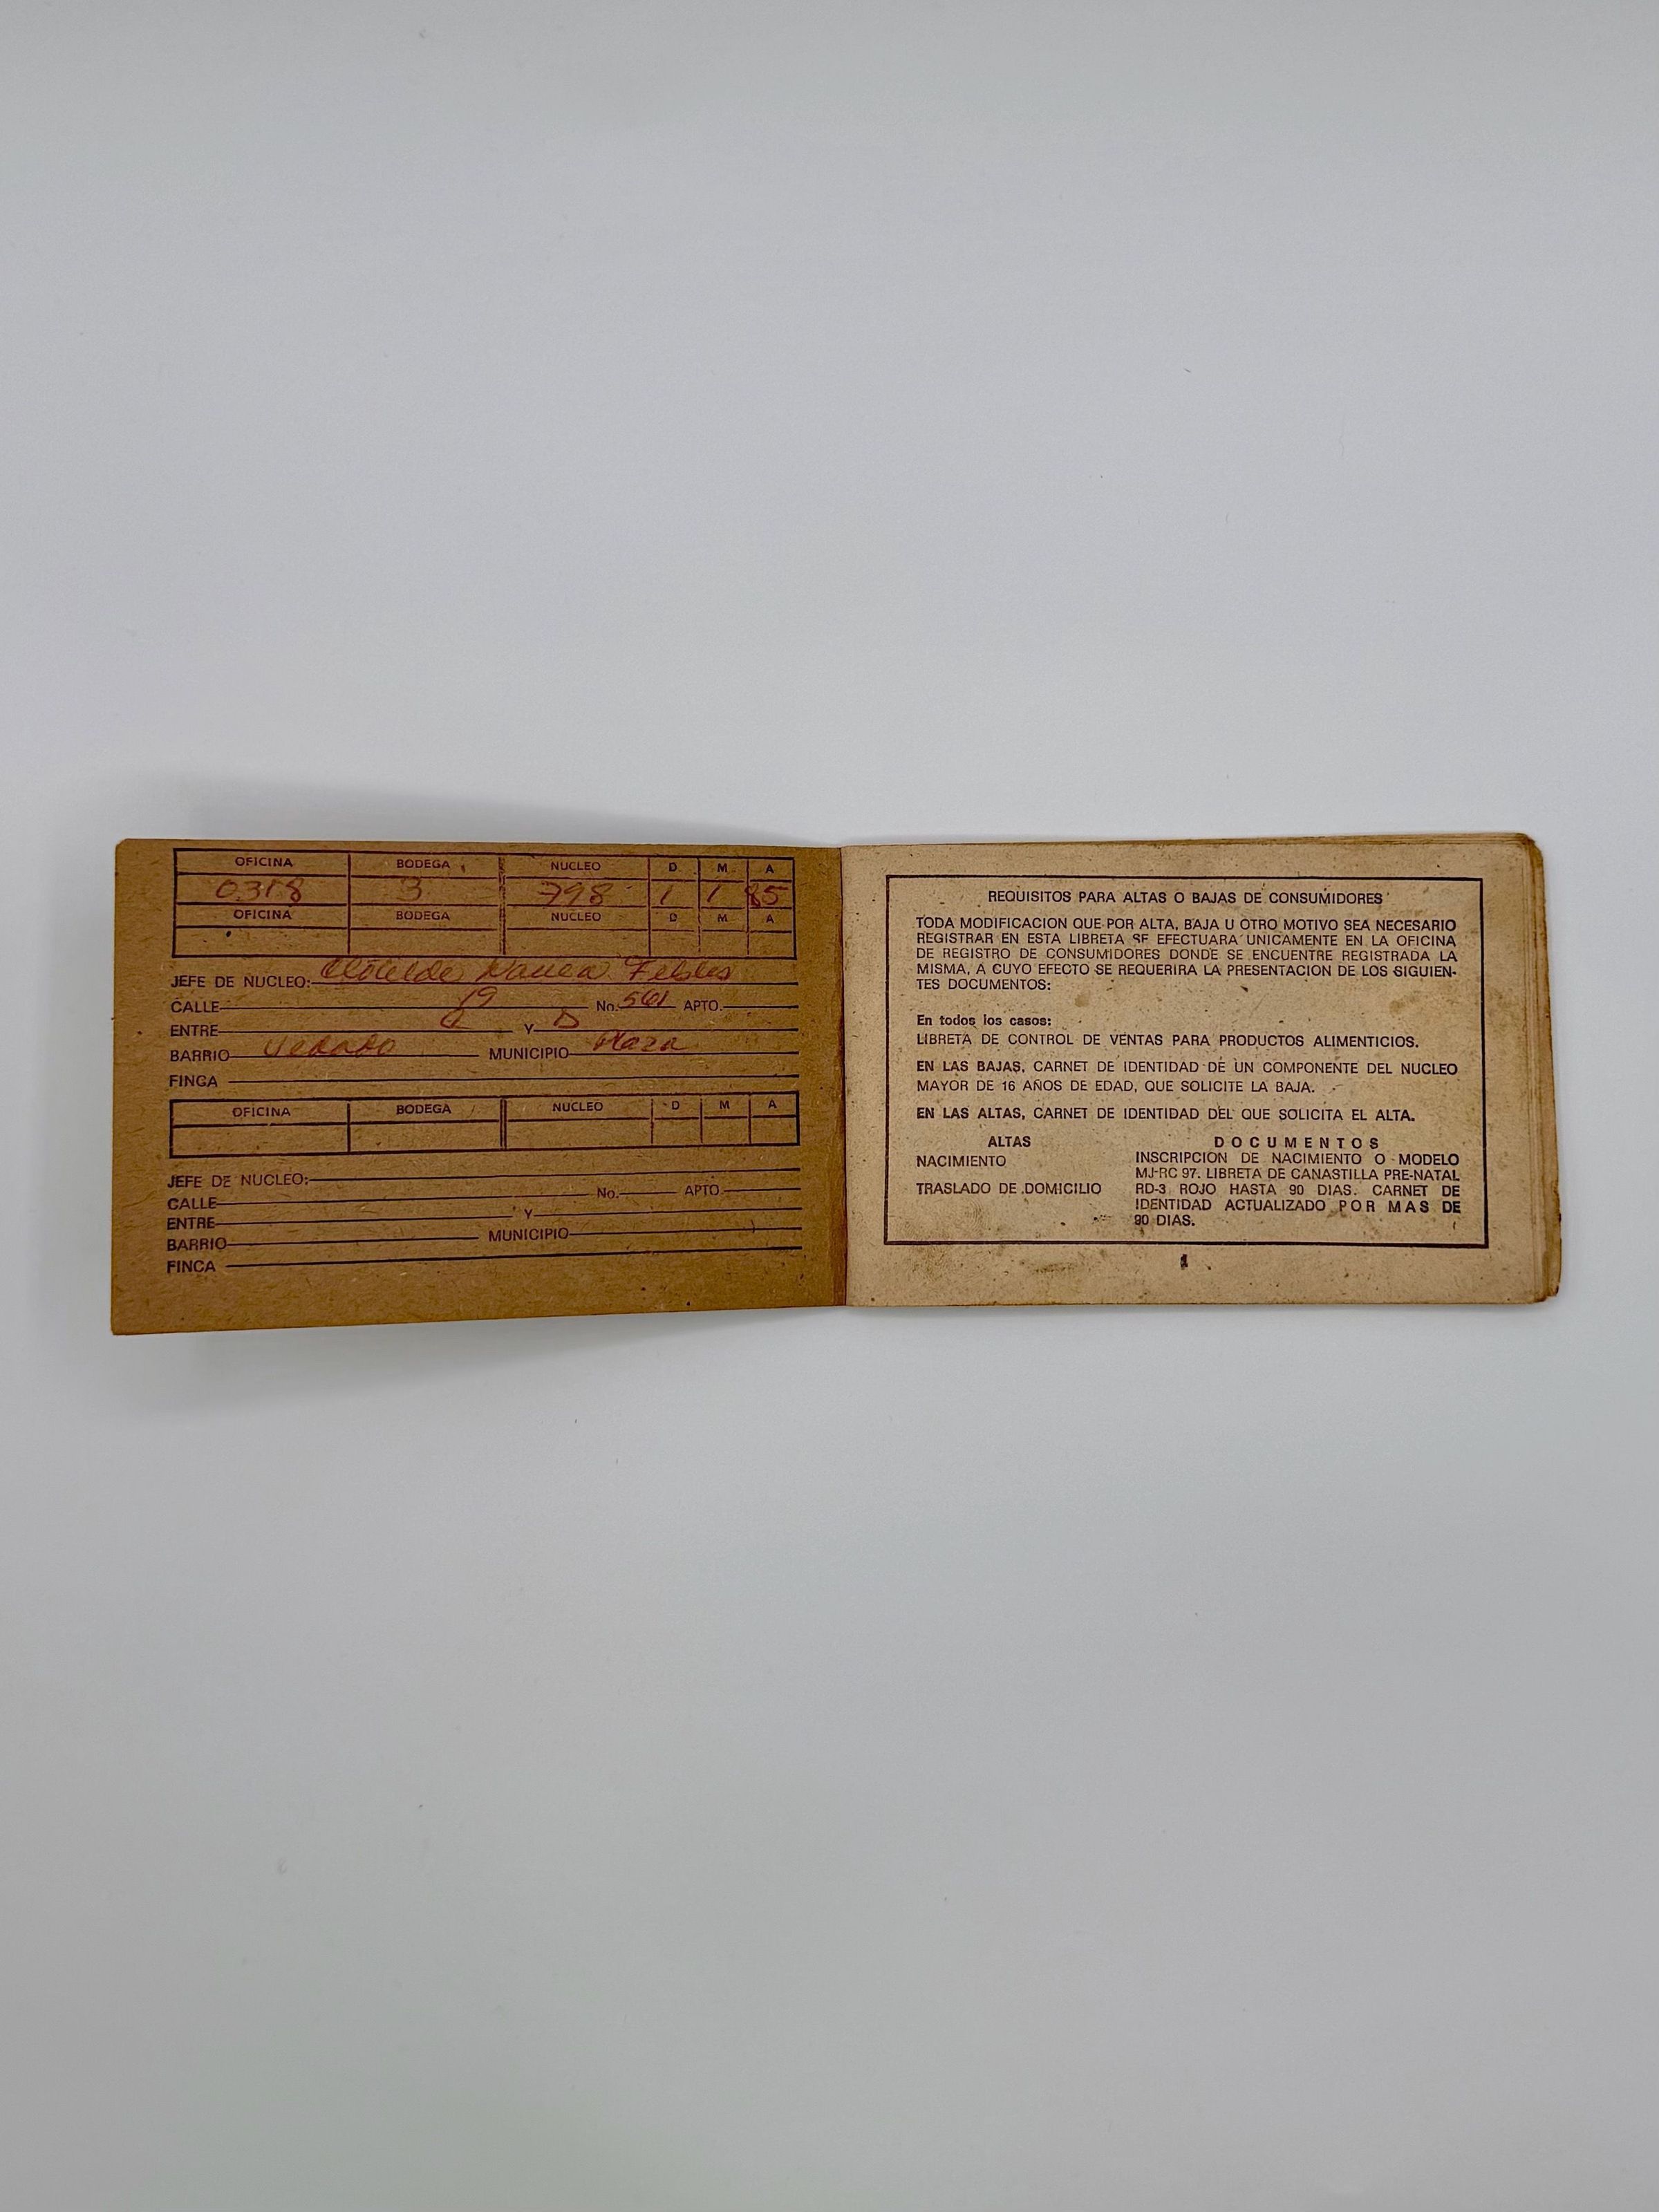 OFICINA BODEGA NUCLEO D M A
0318 3 798 1 1 85
OFICINA BODEGA NUCLEO D M A
JEFE DE NUCLEO: Clotilde Febles
CALLE 19 No. 561 APTO.
ENTRE C Y D
BARRIO Vedado MUNICIPIO Plaza
FINCA
OFICINA BODEGA NUCLEO D M A
JEFE DE NUCLEO:
CALLE No. APTO
ENTRE Y
BARRIO MUNICIPIO
FINCA
REQUISITOS PARA ALTAS O BAJAS DE CONSUMIDORES
TODA MODIFICACION QUE POR ALTA, BAJA U OTRO MOTIVO SEA NECESARIO
REGISTRAR EN ESTA LIBRETA SE EFECTUARA UNICAMENTE EN LA OFICINA
DE REGISTRO DE CONSUMIDORES DONDE SE ENCUENTRE REGISTRADA LA
MISMA, A CUYO EFECTO SE REQUERIRA LA PRESENTACION DE LOS SIGUIEN-
TES DOCUMENTOS:
En todos los casos:
LIBRETA DE CONTROL DE VENTAS PARA PRODUCTOS ALIMENTICIOS.
EN LAS BAJAS, CARNET DE IDENTIDAD DE UN COMPONENTE DEL NUCLEO
MAYOR DE 16 AÑOS DE EDAD, QUE SOLICITE LA BAJA.
EN LAS ALTAS, CARNET DE IDENTIDAD DEL QUE SOLICITA EL ALTA.
ALTAS DOCUMENTOS
NACIMIENTO INSCRIPCION DE NACIMIENTO O MODELO
MJ-RC 97. LIBRETA DE CANASTILLA PRE-NATAL
TRASLADO DE DOMICILIO RD-3 ROJO HASTA 90 DIAS. CARNET DE
IDENTIDAD ACTUALIZADO POR MAS DE
90 DIAS.
1